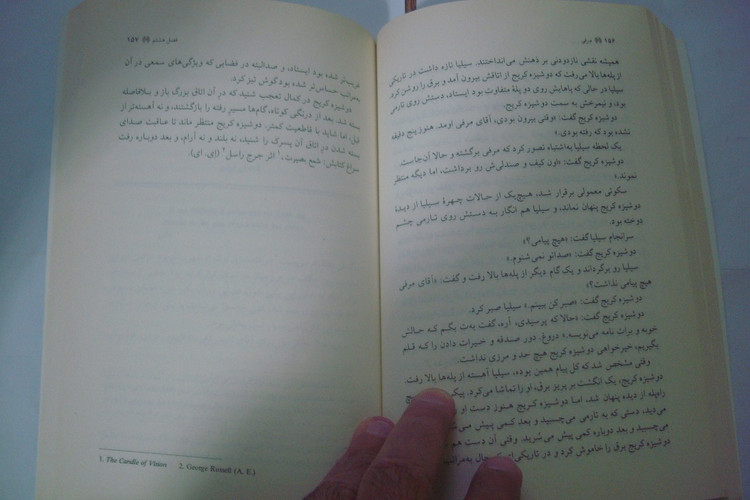 ۱۵۶ مرفی
همیشه نقشی نازدودنی بر ذهنش می‌انداختند. سیلیا تازه داشت در تاریکی
از پله‌ها بالا می‌رفت که دوشیزه کریج از اتاقش بیرون آمد و برق را روشن کرد.
سیلیا در حالی که پاهایش روی دو پلهٔ متفاوت بود ایستاد، دستش روی نارمی
بود، و نیمرخش به سمت دوشیزه کریج.
دوشیزه کریج گفت: «وقتی بیرون بودی، آقای مرفی اومد. هنوز پنج دقیقه
نشده بود که رفته بودی.»
یک لحظه سیلیا به‌اشتباه تصور کرد که مرفی برگشته و حالا آن‌جاست.
دوشیزه کریج گفت: «اون کیف و صندلی‌ش رو برداشت، اما دیگه منتظر
نموند.»
سکوتی معمولی برقرار شد، هیچ‌یک از حالات چهرهٔ سیلیا از دیدهٔ
دوشیزه کریج پنهان نماند، و سیلیا هم انگار به دستش روی نارمی چشم
دوخته بود.
سرانجام سیلیا گفت: «هیچ پیامی؟»
دوشیزه کریج گفت: «صداتو نمی‌شنوم.»
سیلیا رو برگرداند و یک گام دیگر از پله‌ها بالا رفت و گفت: «آقای مرفی
هیچ پیامی نذاشت؟»
دوشیزه کریج گفت: «صبر کن ببینم.» سیلیا صبر کرد.
دوشیزه کریج گفت: «حالا که پرسیدی، آره، گفت به‌ت بگم که حالش
خوبه و برات نامه می‌نویسه.» دروغ. دور صدقه و خیرات دادن را که قلم
بگیریم، خیرخواهی دوشیزه کریج هیچ حد و مرزی نداشت.
وقتی مشخص شد که کل پیام همین بوده، سیلیا آهسته از پله‌ها بالا رفت.
دوشیزه کریج، یک انگشت بر پریز برق، او را تماشا می‌کرد.
راه‌پله از دیده پنهان شد، اما دوشیزه کریج هنوز دست او
می‌دید، دستی که به نارمی می‌چسبید و بعد کمی پیش
می‌چسبید و بعد دوباره کمی پیش می‌سُرید. وقتی آن دست هم
دوشیزه کریج برق را خاموش کرد و در تاریکی‌ای که حال
فصل هشتم ۱۵۷
غریب‌تر شده بود ایستاد، و صدالبته در فضایی که ویژگی‌های سمعی در آن
به‌مراتب حساس‌تر شده بود گوش تیز کرد.
دوشیزه کریج در کمال تعجب شنید که در آن اتاق بزرگ باز و بلافاصله
بسته شد. بعد از درنگی کوتاه، گام‌ها مسیر رفته را بازگشتند، و نه آهسته‌تر از
قبل، اما شاید با قاطعیت کمتر. دوشیزه کریج منتظر ماند تا عاقبت صدای
بسته شدن در اتاق آن پسرک را شنید، نه بلند و نه آرام، و بعد دوباره رفت
سراغ کتابش: شمع بصیرت،۱ اثر جرج راسل۲ (اِی. ای).
1. The Candle of Vision 2. George Russell (A. E.)